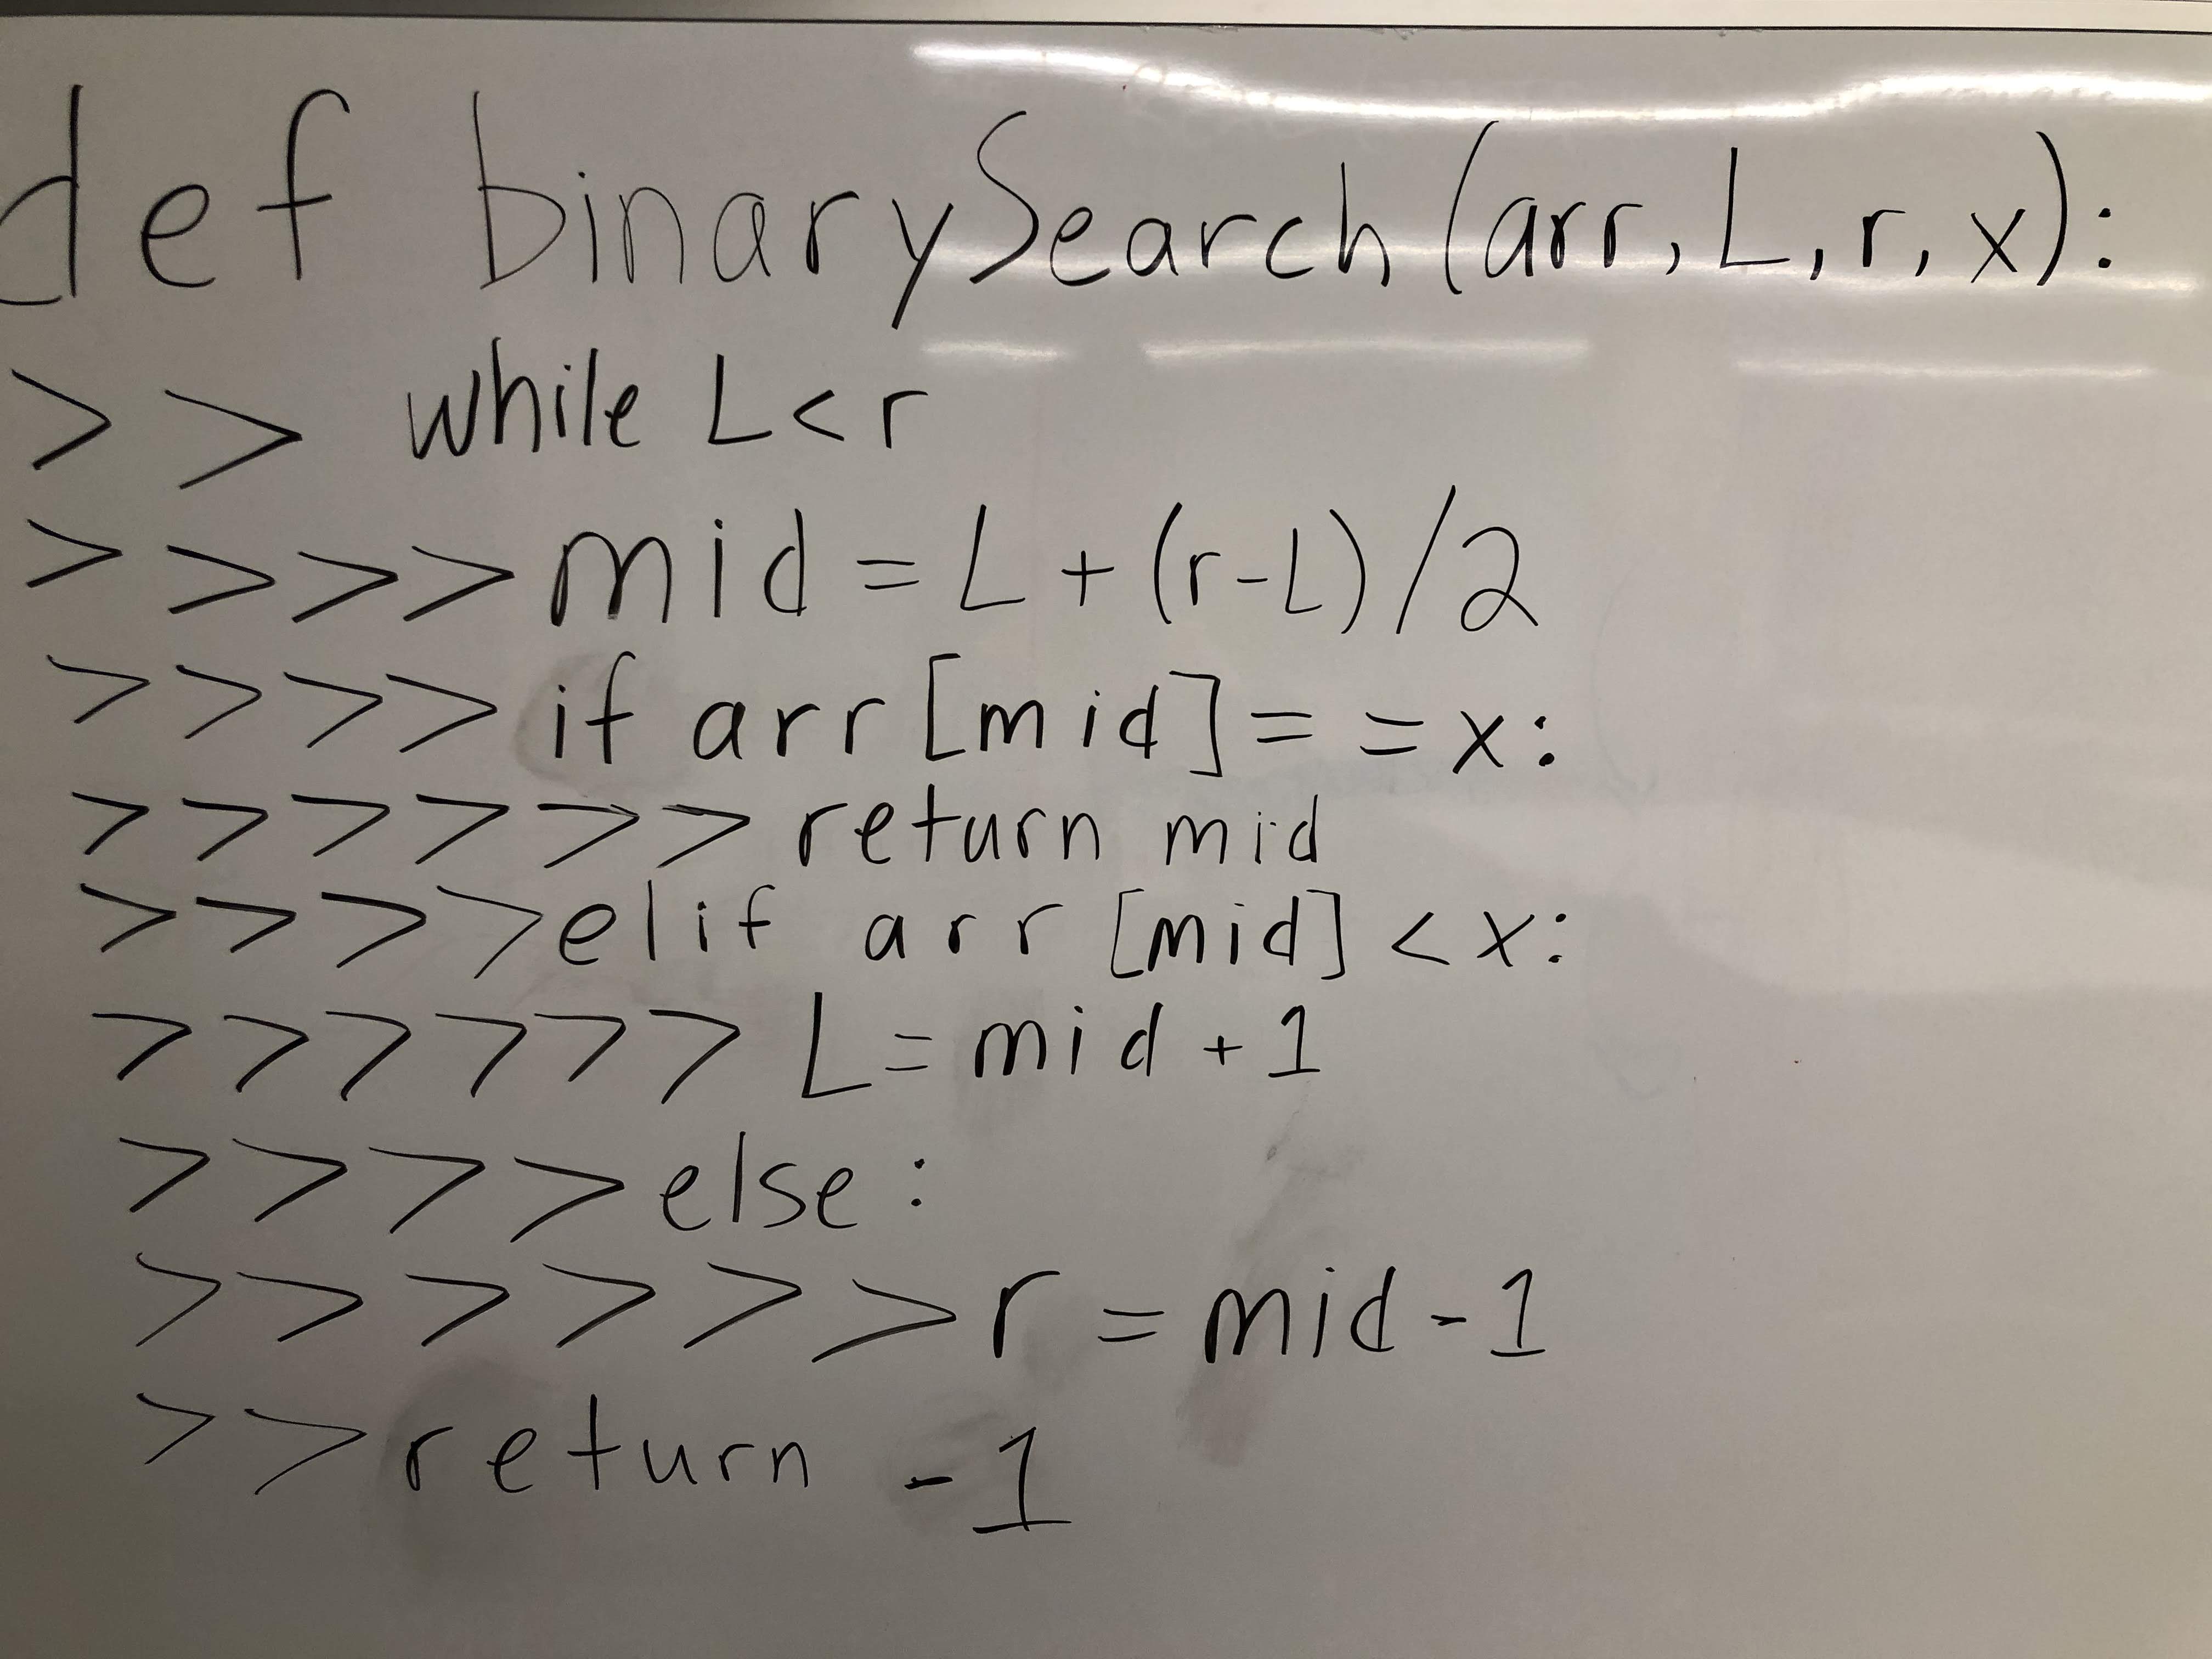 def binarySearch(arr, L, r, x):
>> while L<r
>>>> mid = L + (r-L)/2
>>>> if arr[mid]= =x:
>>>>>> return mid
>>>> elif arr [mid] <x:
>>>>>> L= mid +1
>>>> else:
>>>>>> r = mid-1
>> return -1